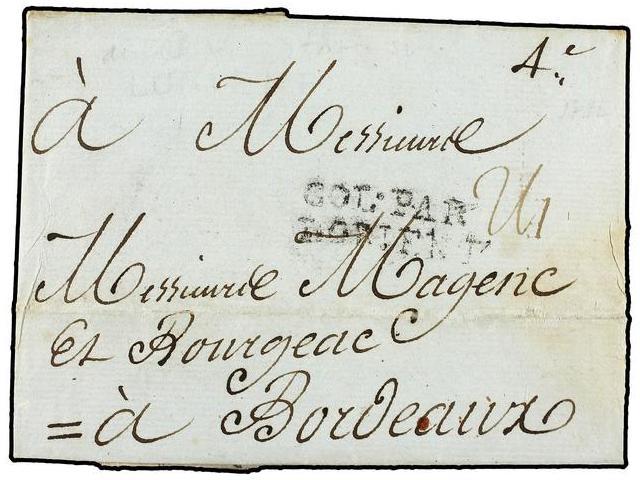 4e
à Messieurs
COL·PAR
LORIENT
Messieurs Magenc
Et Bourgeac
= à Bordeaux